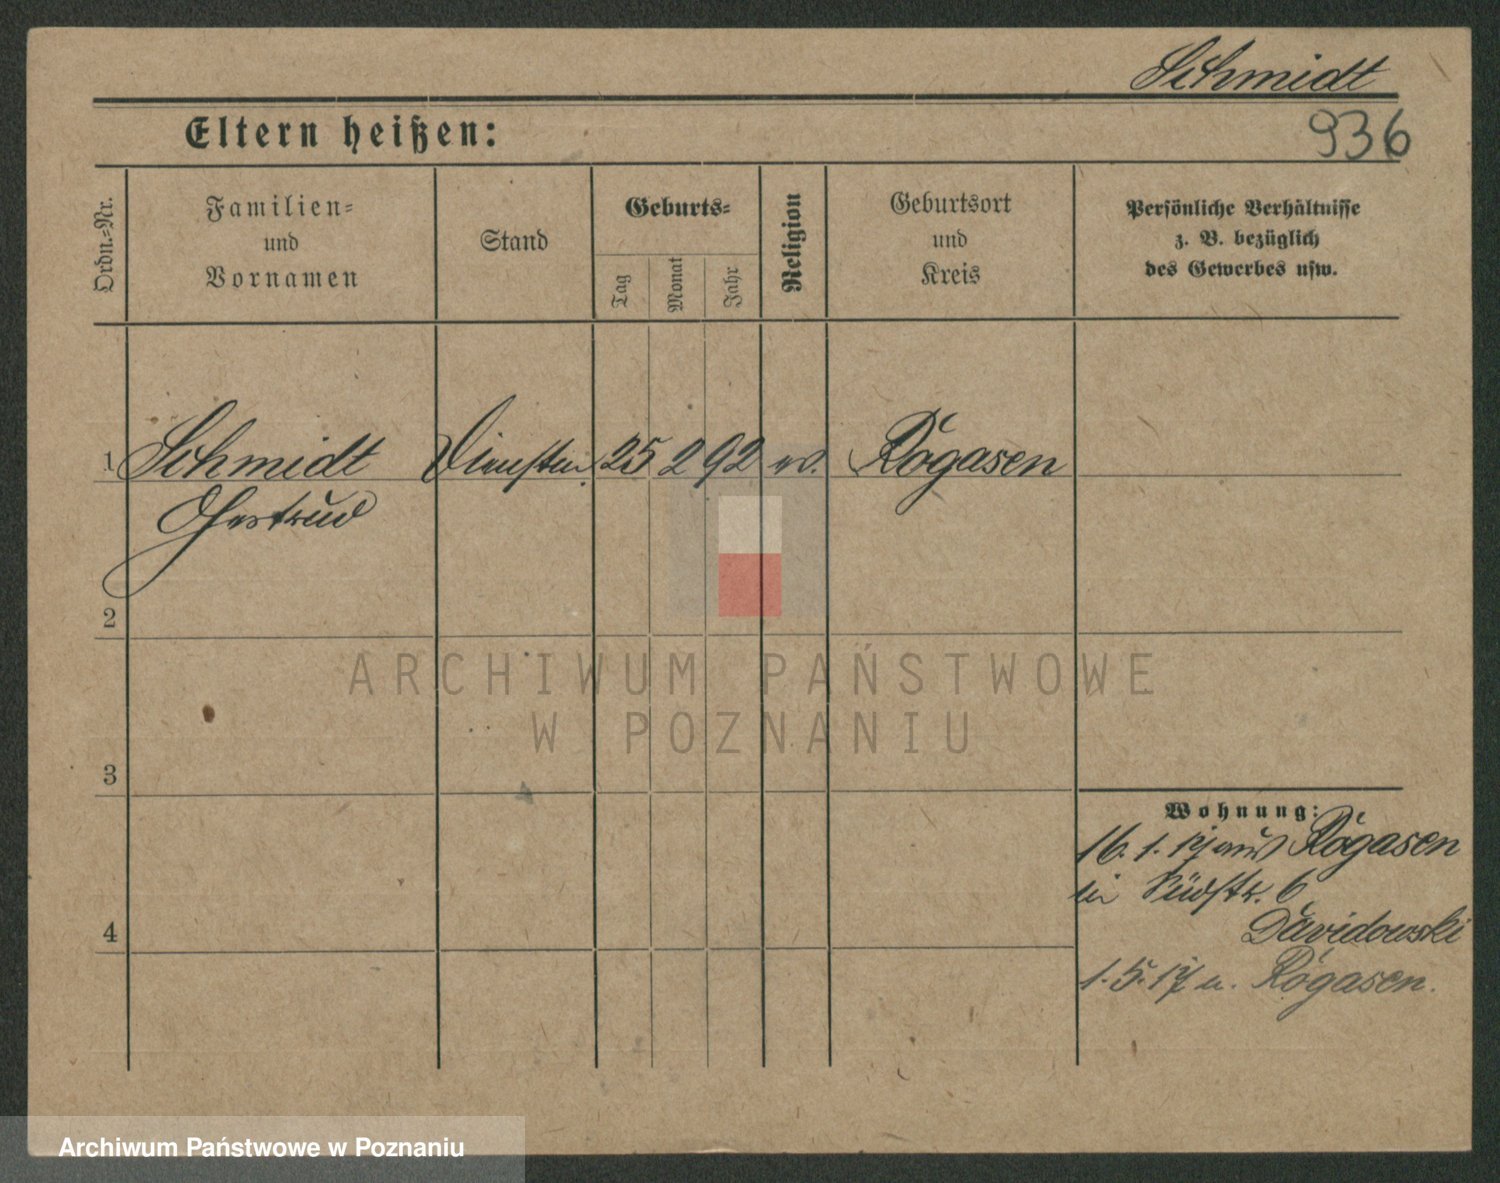 Schmidt
Eltern heißen:
936
Ordn.=Nr.
Familien=
und
Vornamen
Stand
Geburts=
Tag
Monat
Jahr
Religion
Geburtsort
und
Kreis
Persönliche Verhältnisse
z. B. bezüglich
des Gewerbes usw.
1 Schmidt 25 2 92 Rogasen
Gertrud
2
ARCHIWUM PAŃSTWOWE
W POZNANIU
3
Wohnung:
16. 1. 17 aus Rogasen
in Südstr. 6
4
Davidowski
1. 5. 17 n. Rogasen.
Archiwum Państwowe w Poznaniu